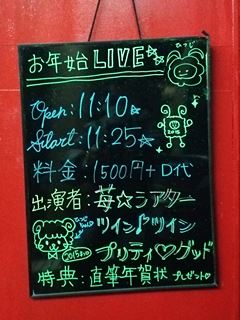 お年始LIVE☆
ひつじ
Open:11:10☆
2015
Start:11:25☆
料金:1500円+D代
出演者:苺☆シアター
ツイン♪ツイン
プリティ♡グッド
特典:直筆年賀状プレゼント♡